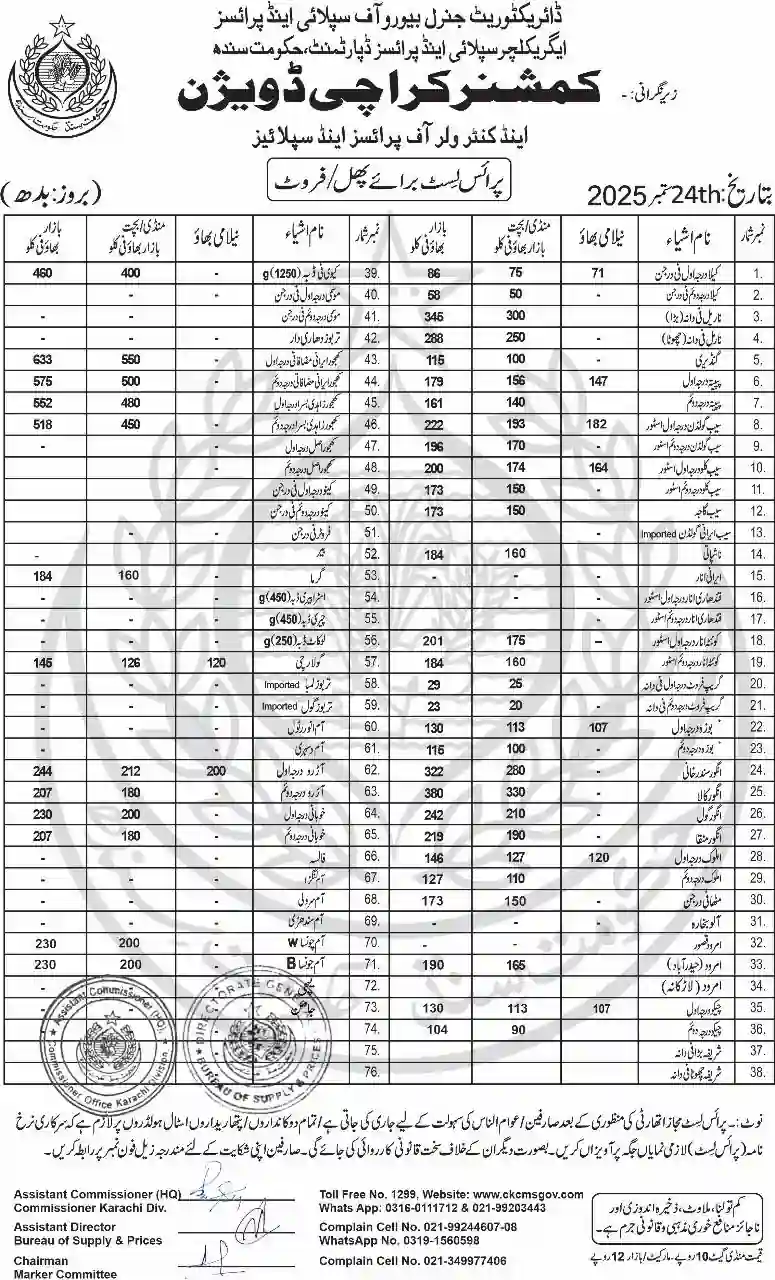 ڈائریکٹوریٹ جنرل بیورو آف سپلائی اینڈ پرائسز
ایگریکلچر سپلائی اینڈ پرائسز ڈپارٹمنٹ، حکومت سندھ
زیرِ نگرانی: - کمشنر کراچی ڈویژن
اینڈ کنٹرولر آف پرائسز اینڈ سپلائیز
پرائس لسٹ برائے پھل/فروٹ
بتاریخ: 24th ستمبر 2025
(بروز: بدھ)
نمبر شمار نام اشیاء نیلامی بھاؤ منڈی/بچت بازار بھاؤ فی کلو بازار بھاؤ فی کلو
1. کیلا درجہ اول فی درجن 71 75 86
2. کیلا درجہ دوئم فی درجن - 50 58
3. ناریل فی دانہ (بڑا) 300 345
4. ناریل فی دانہ (چھوٹا) 250 288
5. گنڈیری 100 115
6. پپیتہ درجہ اول 147 156 179
7. پپیتہ درجہ دوئم 140 161
8. سیب گولڈن درجہ اول اسٹور 182 193 222
9. سیب گولڈن درجہ دوئم اسٹور - 170 196
10. سیب کلو درجہ اول اسٹور 164 174 200
11. سیب کلو درجہ دوئم اسٹور - 150 173
12. سیب گاجہ 150 173
13. سیب ایرانی گولڈن Imported
14. ناشپاتی 160 184
15. ایرانی انار - - -
16. قندھاری انار درجہ اول اسٹور -
17. قندھاری انار درجہ دوئم اسٹور -
18. کوئٹہ انار درجہ اول اسٹور – 175 201
19. کوئٹہ انار درجہ دوئم اسٹور - 160 184
20. گریپ فروٹ درجہ اول فی دانہ - 25 29
21. گریپ فروٹ درجہ دوئم فی دانہ - 20 23
22. بوزہ درجہ اول 107 113 130
23. بوزہ درجہ دوئم - 100 115
24. انگور سندرخانی - 280 322
25. انگور کالا - 330 380
26. انگور گول - 210 242
27. انگور منقا - 190 219
28. املوک درجہ اول 120 127 146
29. املوک درجہ دوئم 110 127
30. مٹھائی درجن - 150 173
31. آلو بخارہ
32. امرود قصور - - -
33. امرود (حیدرآباد) - 165 190
34. امرود (لاڑکانہ) -
35. چیکو درجہ اول 107 113 130
36. چیکو درجہ دوئم 90 104
37. شریفہ بڑا فی دانہ
38. شریفہ چھوٹا فی دانہ
39. کیوی فی ڈبہ (1250)g - 400 460
40. موسمی درجہ اول فی درجن - -
41. موسمی درجہ دوئم فی درجن - - -
42. تربوز دھاری دار - - -
43. کھجور ایرانی مضافاتی درجہ اول - 550 633
44. کھجور ایرانی مضافاتی درجہ دوئم - 500 575
45. کھجور زاہدی بسرا درجہ اول - 480 552
46. کھجور زاہدی بسرا درجہ دوئم - 450 518
47. کھجور اصل درجہ اول - - -
48. کھجور اصل درجہ دوئم -
49. کینو درجہ اول فی درجن
50. کینو درجہ دوئم فی درجن
51. فروٹر فی درجن - -
52. -
53. گرما 160 184
54. اسٹرابیری ڈبہ (450)g - - -
55. چیری ڈبہ (450)g - - -
56. لوکاٹ ڈبہ (250)g - - -
57. گولارچی 120 126 145
58. تربوز لمبا Imported - - -
59. تربوز گول Imported - - -
60. آم انور رٹول - - -
61. آم دسہری - - -
62. آڑو درجہ اول 200 212 244
63. آڑو درجہ دوئم - 180 207
64. خوبانی درجہ اول - 200 230
65. خوبانی درجہ دوئم - 180 207
66. فالسہ - - -
67. آم لنگڑا - - -
68. آم سرولی - - -
69. آم سندھڑی - - -
70. آم چونسا W - 200 230
71. آم چونسا B - 200 230
72.
73.
74.
75.
76.
Assistant Commissioner (HQ)
Commissioner Office Karachi Division
DIRECTORATE GENERAL
BUREAU OF SUPPLY & PRICES
نوٹ:۔ پرائس لسٹ مجاز اتھارٹی کی منظوری کے بعد صارفین/عوام الناس کی سہولت کے لیے جاری کی جاتی ہے/تمام دوکانداروں/پتھاریداروں اسٹال ہولڈروں پر لازم ہے کہ سرکاری نرخ
نامہ (پرائس لسٹ) لازمی نمایاں جگہ پر آویزاں کریں۔ بصورت دیگر ان کے خلاف سخت قانونی کارروائی کی جائے گی۔ صارفین اپنی شکایت کے لئے مندرجہ زیل فون نمبر پر رابطہ کریں۔
Assistant Commissioner (HQ)
Commissioner Karachi Div.
Assistant Director
Bureau of Supply & Prices
Chairman
Marker Committee
Toll Free No. 1299, Website: www.ckcmsgov.com
Whats App: 0316-0111712 & 021-99203443
Complain Cell No. 021-99244607-08
WhatsApp No. 0319-1560598
Complain Cell No. 021-349977406
کم تولنا، ملاوٹ، ذخیرہ اندوزی اور
ناجائز منافع خوری مذہبی و قانونی جرم ہے۔
قیمت منڈی گیٹ 10 روپے۔ مارکیٹ/بازار 12 روپے